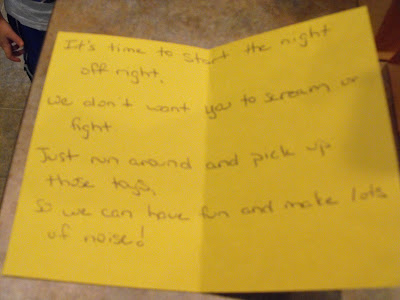 It's time to start the night
off right,
We don't want you to scream or
fight
Just run around and pick up
those toys,
So we can have fun and make lots
of noise!